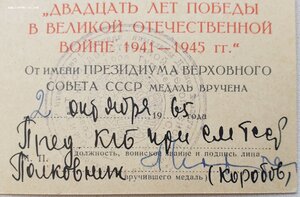 „ДВАДЦАТЬ ЛЕТ ПОБЕДЫ
В ВЕЛИКОЙ ОТЕЧЕСТВЕННОЙ
ВОЙНЕ 1941—1945 гг.“
От имени ПРЕЗИДИУМА ВЕРХОВНОГО
СОВЕТА СССР МЕДАЛЬ ВРУЧЕНА
2 октября 1965 года
Пред. КГБ при СМ ТССР
Полковник (Коробов)
М. П. должность, воинское звание и подпись лица,
вручившего медаль